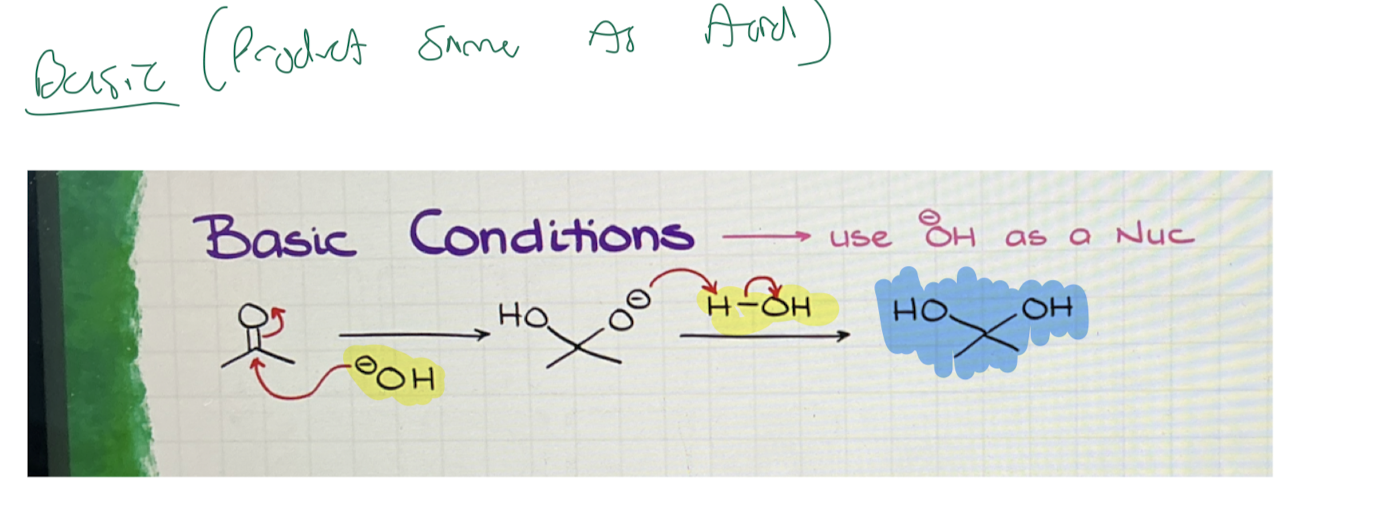 Basic (Product Same As Acid)
Basic Conditions → use ⊖OH as a Nuc
O HO O⊖ H-OH HO OH
⊖OH